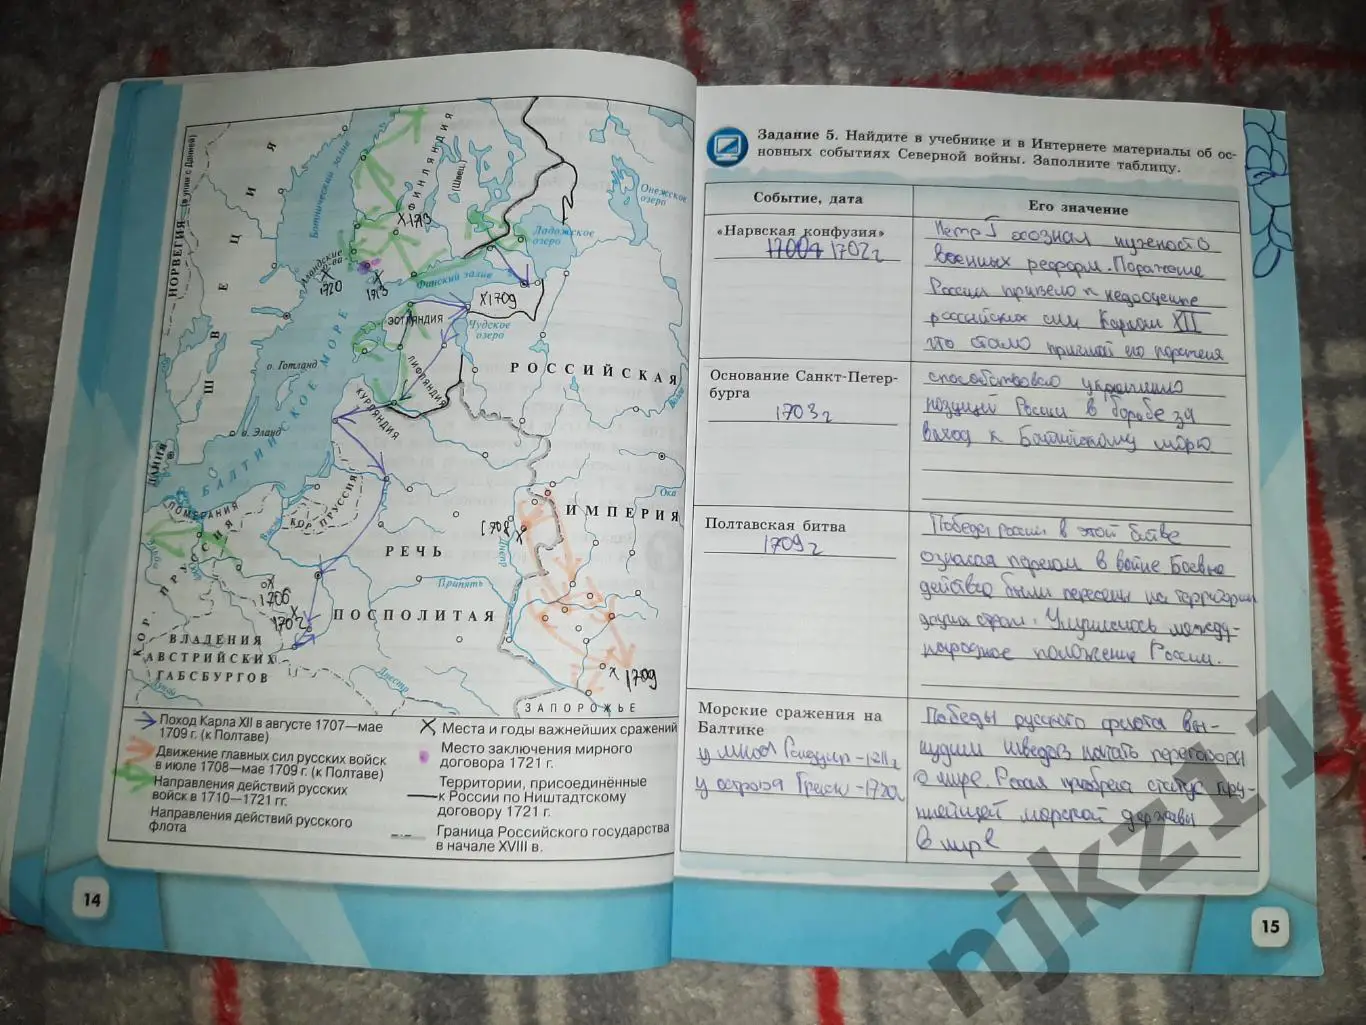 НОРВЕГИЯ (в унии с Данией)
ШВЕЦИЯ
Ботнический залив
ФИНЛЯНДИЯ
(Швец.)
Онежское
озеро
Ладожское
озеро
Аландские
о-ва
1720
1713
Х1713
Финский залив
Х1709
ЭСТЛЯНДИЯ
Чудское
озеро
ЛИФЛЯНДИЯ
КУРЛЯНДИЯ
о. Готланд
о. Эланд
БАЛТИЙСКОЕ МОРЕ
ДАНИЯ
РОССИЙСКАЯ
Волга
Ока
ИМПЕРИЯ
ПОМЕРАНИЯ
КОР. ПРУССИЯ
КОР. ПРУССИЯ
Висла
1708
Днепр
РЕЧЬ
Припять
ПОСПОЛИТАЯ
1706
1702
ВЛАДЕНИЯ
АВСТРИЙСКИХ
ГАБСБУРГОВ
Дунай
Днестр
1709
ЗАПОРОЖЬЕ
Поход Карла XII в августе 1707—мае
1709 г. (к Полтаве)
Движение главных сил русских войск
в июле 1708—мае 1709 г. (к Полтаве)
Направления действий русских
войск в 1710—1721 гг.
Направления действий русского
флота
Места и годы важнейших сражений
Место заключения мирного
договора 1721 г.
Территории, присоединённые
к России по Ништадтскому
договору 1721 г.
Граница Российского государства
в начале XVIII в.
14
Задание 5. Найдите в учебнике и в Интернете материалы об ос-
новных событиях Северной войны. Заполните таблицу.
Событие, дата
Его значение
«Нарвская конфузия»
1702г
Петр I осознал нужность
военных реформ. Поражение
России привело к недооценке
российских сил Карлом XII
что стало причиной его поражения
Основание Санкт-Петер-
бурга
1703г
способствовало укреплению
позиций России в борьбе за
выход к Балтийскому морю
Полтавская битва
1709г
Победа россии в этой битве
означала перелом в войне Боевые
действия были перенесены на территории
других стран. Улучшилось между-
народное положение России.
Морские сражения на
Балтике
у мыса
у острова Гренг -1720
Победы русского флота вы-
нудили шведов начать переговоры
о мире. Россия приобрела статус кру-
пнейшей морской державы
в мире
15
njkz11